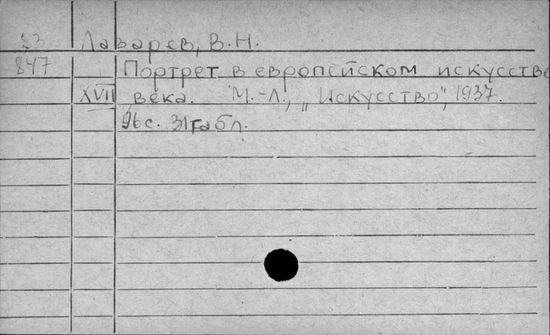 53 Лазарев, В.Н.
847 Портрет в европейском искусстве
XVII века. М.-Л., „Искусство", 1937.
96 с. 31 табл.